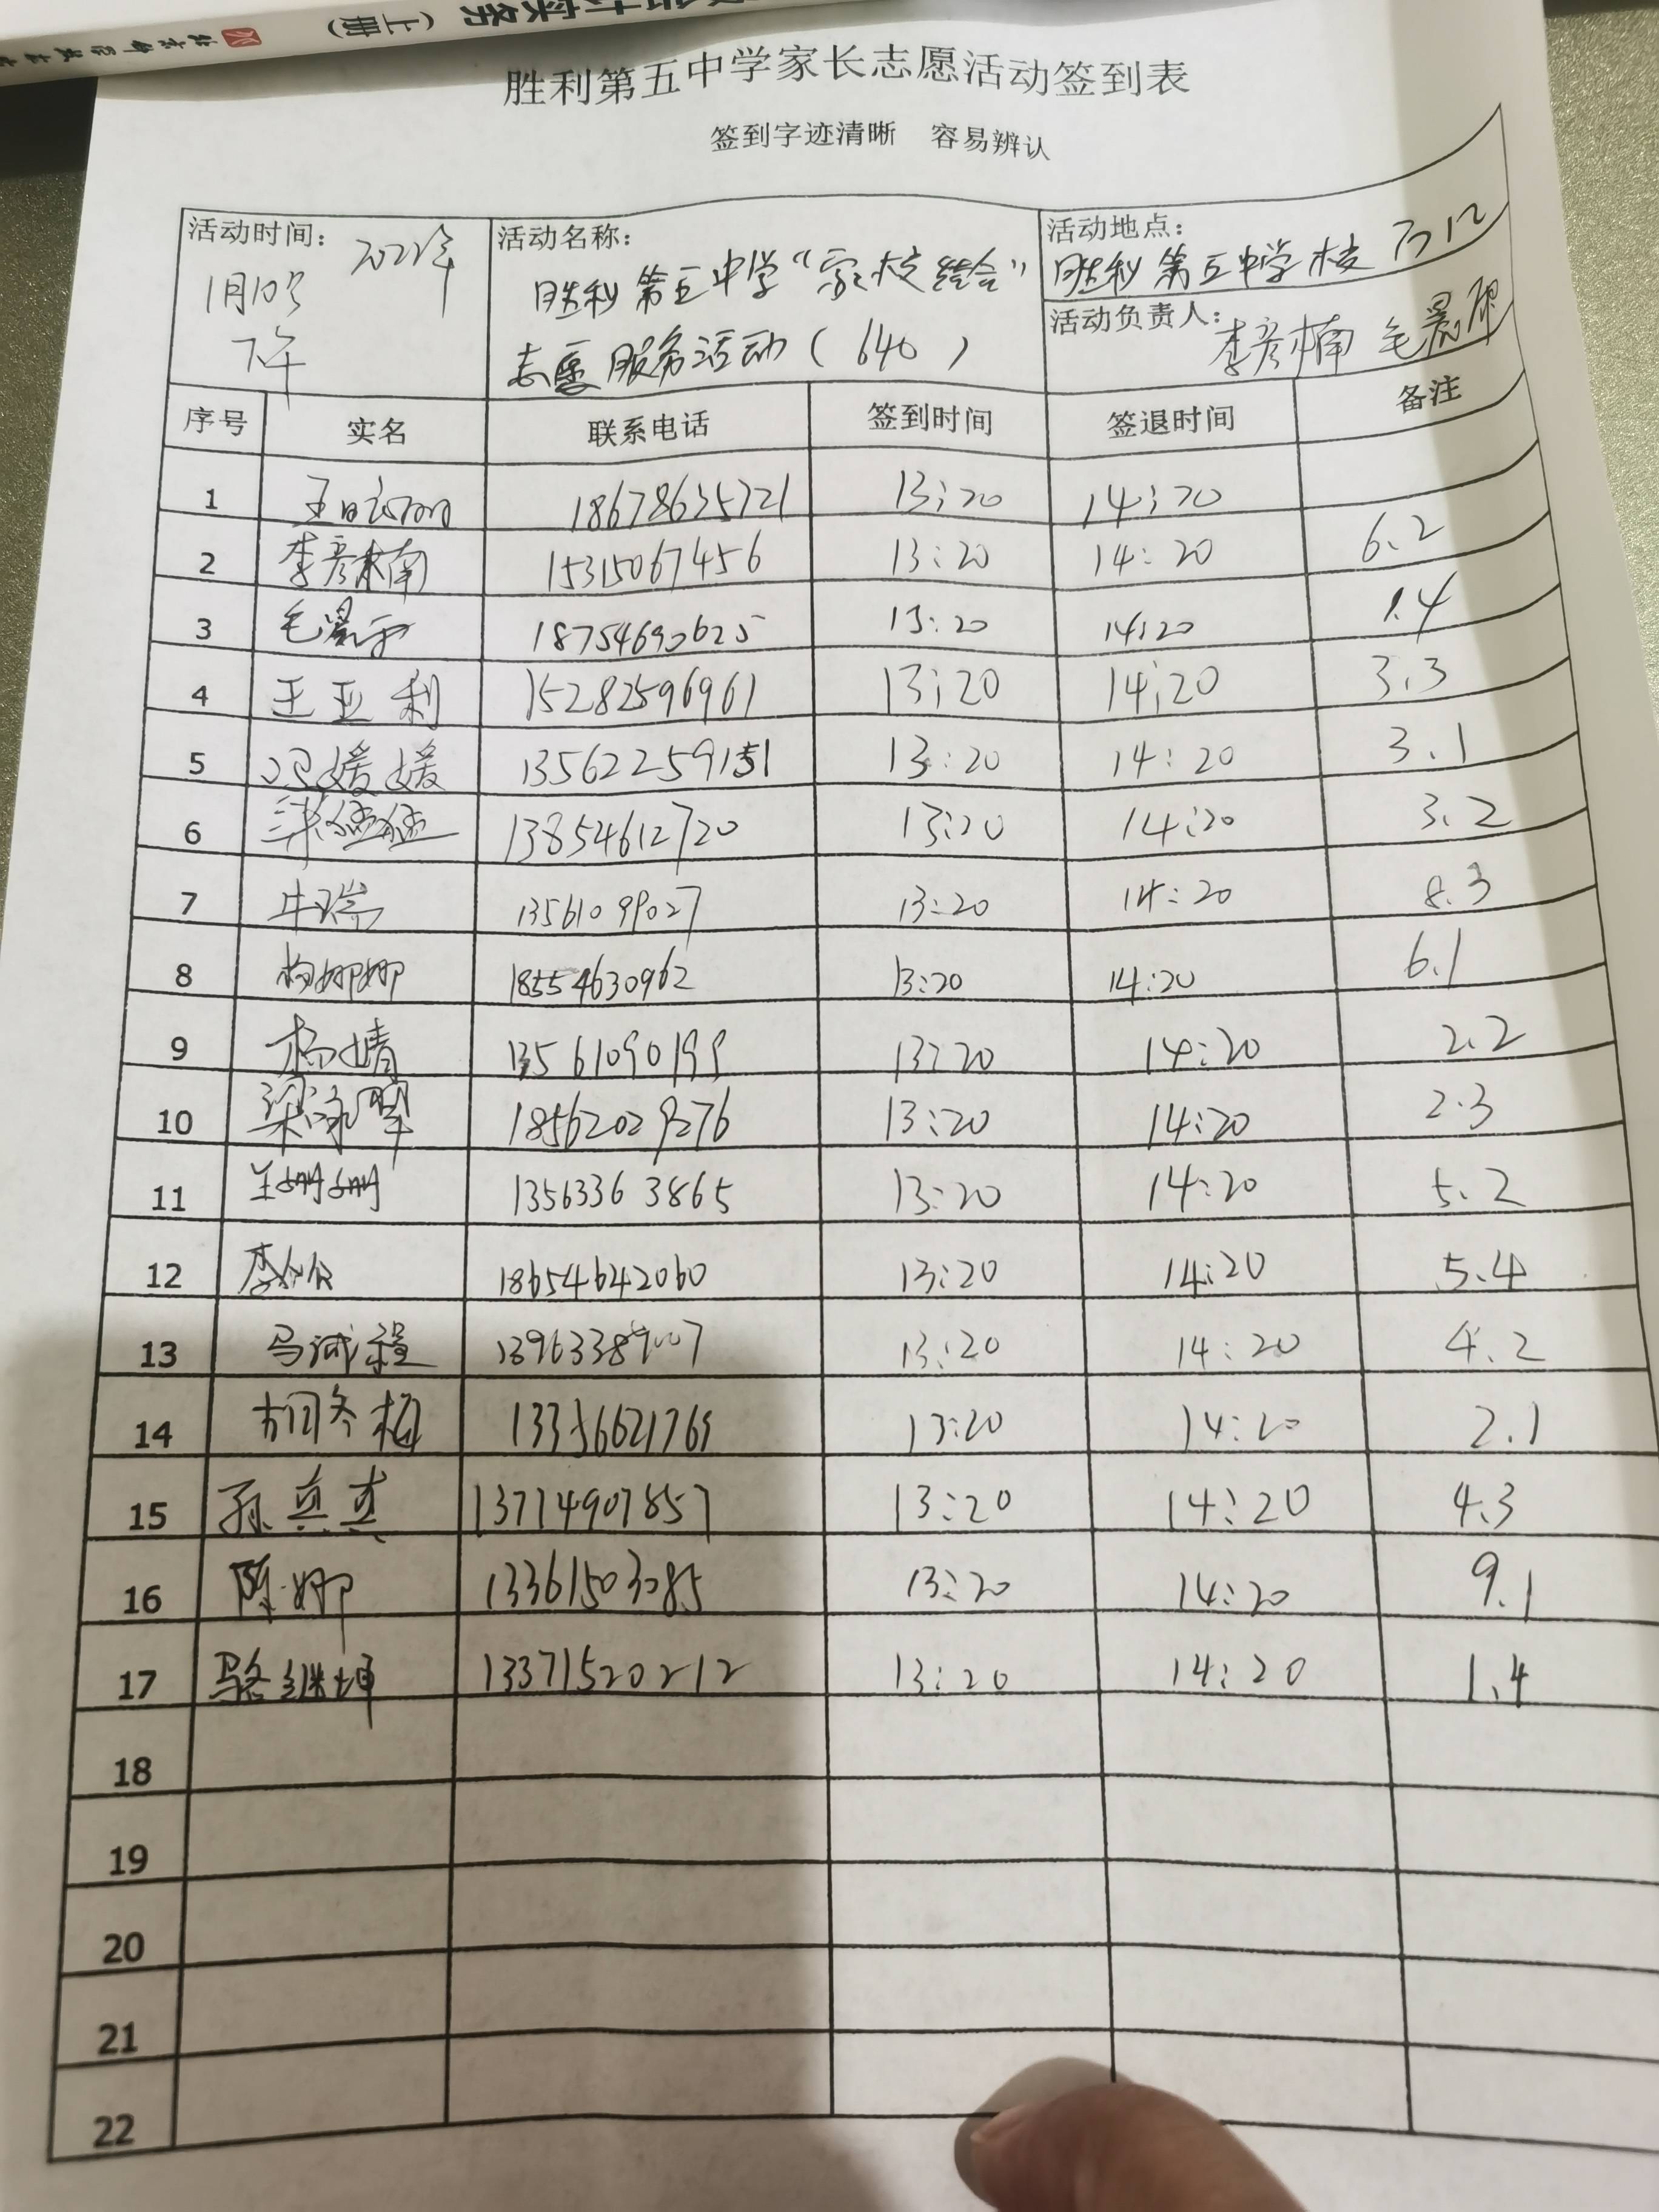 （上册）
胜利第五中学家长志愿活动签到表
签到字迹清晰 容易辨认
活动时间： 活动名称： 活动地点：
1月10号 下午
胜利第五中学“家校结合”
志愿服务活动（640）
胜利第五中学校门口
活动负责人：李彦楠
序号 实名 联系电话 签到时间 签退时间 备注
1 18678635721 13:20 14:20
2 李彦楠 15315067456 13:20 14:20 6.2
3 18754690625 13:20 14:20 1.4
4 王亚利 15282596961 13:20 14:20 3.3
5 冯媛媛 13562259151 13:20 14:20 3.1
6 13854612720 13:20 14:20 3.2
7 牛瑞 13561099027 13:20 14:20 8.3
8 杨娜娜 18554630962 13:20 14:20 6.1
9 杨婧 13561090199 13:20 14:20 2.2
10 18562029276 13:20 14:20 2.3
11 王姗姗 13563363865 13:20 14:20 5.2
12 18654642060 13:20 14:20 5.4
13 马诚程 13963389007 13:20 14:20 4.2
14 胡冬梅 13:20 14:20 2.1
15 孙真真 13714907857 13:20 14:20 4.3
16 陈娜 13361503085 13:20 14:20 9.1
17 骆继坤 13371520212 13:20 14:20 1.4
18
19
20
21
22